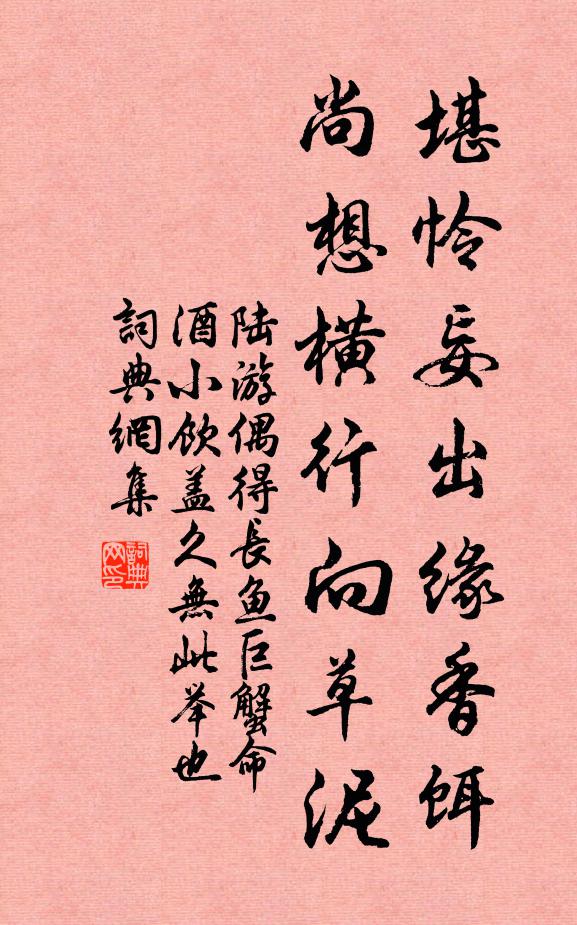 堪怜妄出缘香饵
尚想横行向草泥
陆游偶得長鱼巨蟹命
酒小飲盖久無此举也
詞典網集
詞典
网印